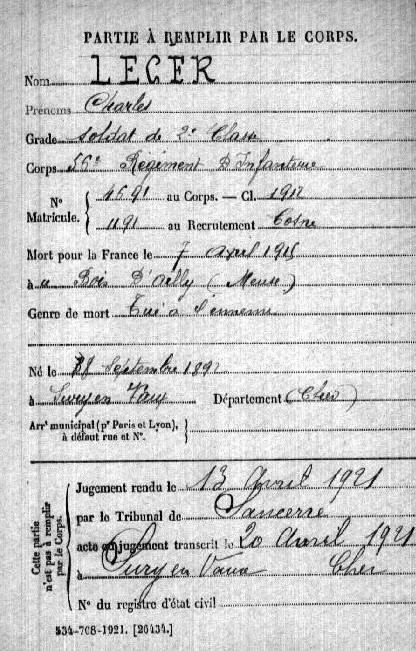 PARTIE À REMPLIR PAR LE CORPS.
Nom LEGER
Prénoms Charles
Grade Soldat de 2e Classe
Corps 56e Régiment D'Infanterie
N° Matricule. { 4591 au Corps. — Cl. 1912
1191 au Recrutement Cosne
Mort pour la France le 7 avril 1915
à u Bois D'ailly (Meuse)
Genre de mort Tué à l'ennemi
Né le 28 Septembre 1892
à Sury en Vaux Département (Cher)
Arrt municipal (pr Paris et Lyon), à défaut rue et N°. }
Cette partie n'est pas à remplir par le Corps. {
Jugement rendu le 13 Avril 1921
par le Tribunal de Sancerre
acte ou jugement transcrit le 20 Avril 1921
à Sury en Vaux Cher
N° du registre d'état civil
534-708-1921. [26434.]